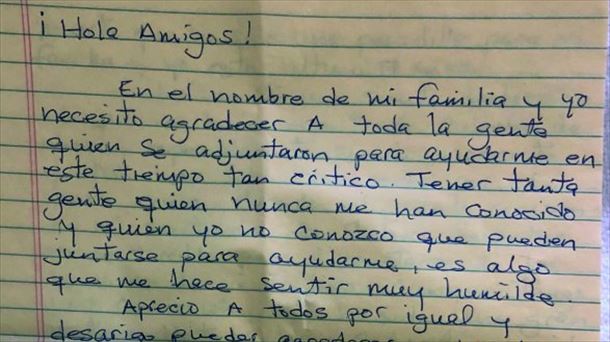 ¡Hola Amigos!
En el nombre de mi familia y yo
necesito agradecer A toda la gente
quien se adjuntaron para ayudarme en
este tiempo tan crítico. Tener tanta
gente quien nunca me han conocido
y quien yo no conozco que pueden
juntarse para ayudarme, es algo
que me hace sentir muy humilde.
Aprecio A todos por igual y
desaria poder